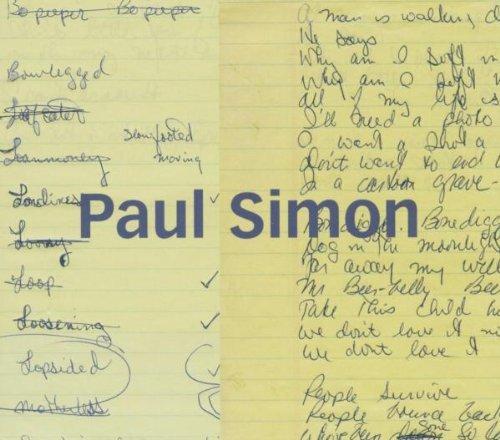 Bo peeper Bo peeper
Bowlegged
Loneliness
Loony
Loop
Loosening
Lopsided
motherless
slewfooted
moving
Paul Simon
A man is walking d
He says
Why am I soft in
Why am I soft in
all of my life is
I'll need a photo
I want a shot a
don't want to end u
In a cartoon grave.
Bonedigger. Bonedigg
Dog in the moonligh
Far away my well
Mr Beer-belly Bee
Take this child ho
We don't love it
we don't love it
People Survive
People bounce back